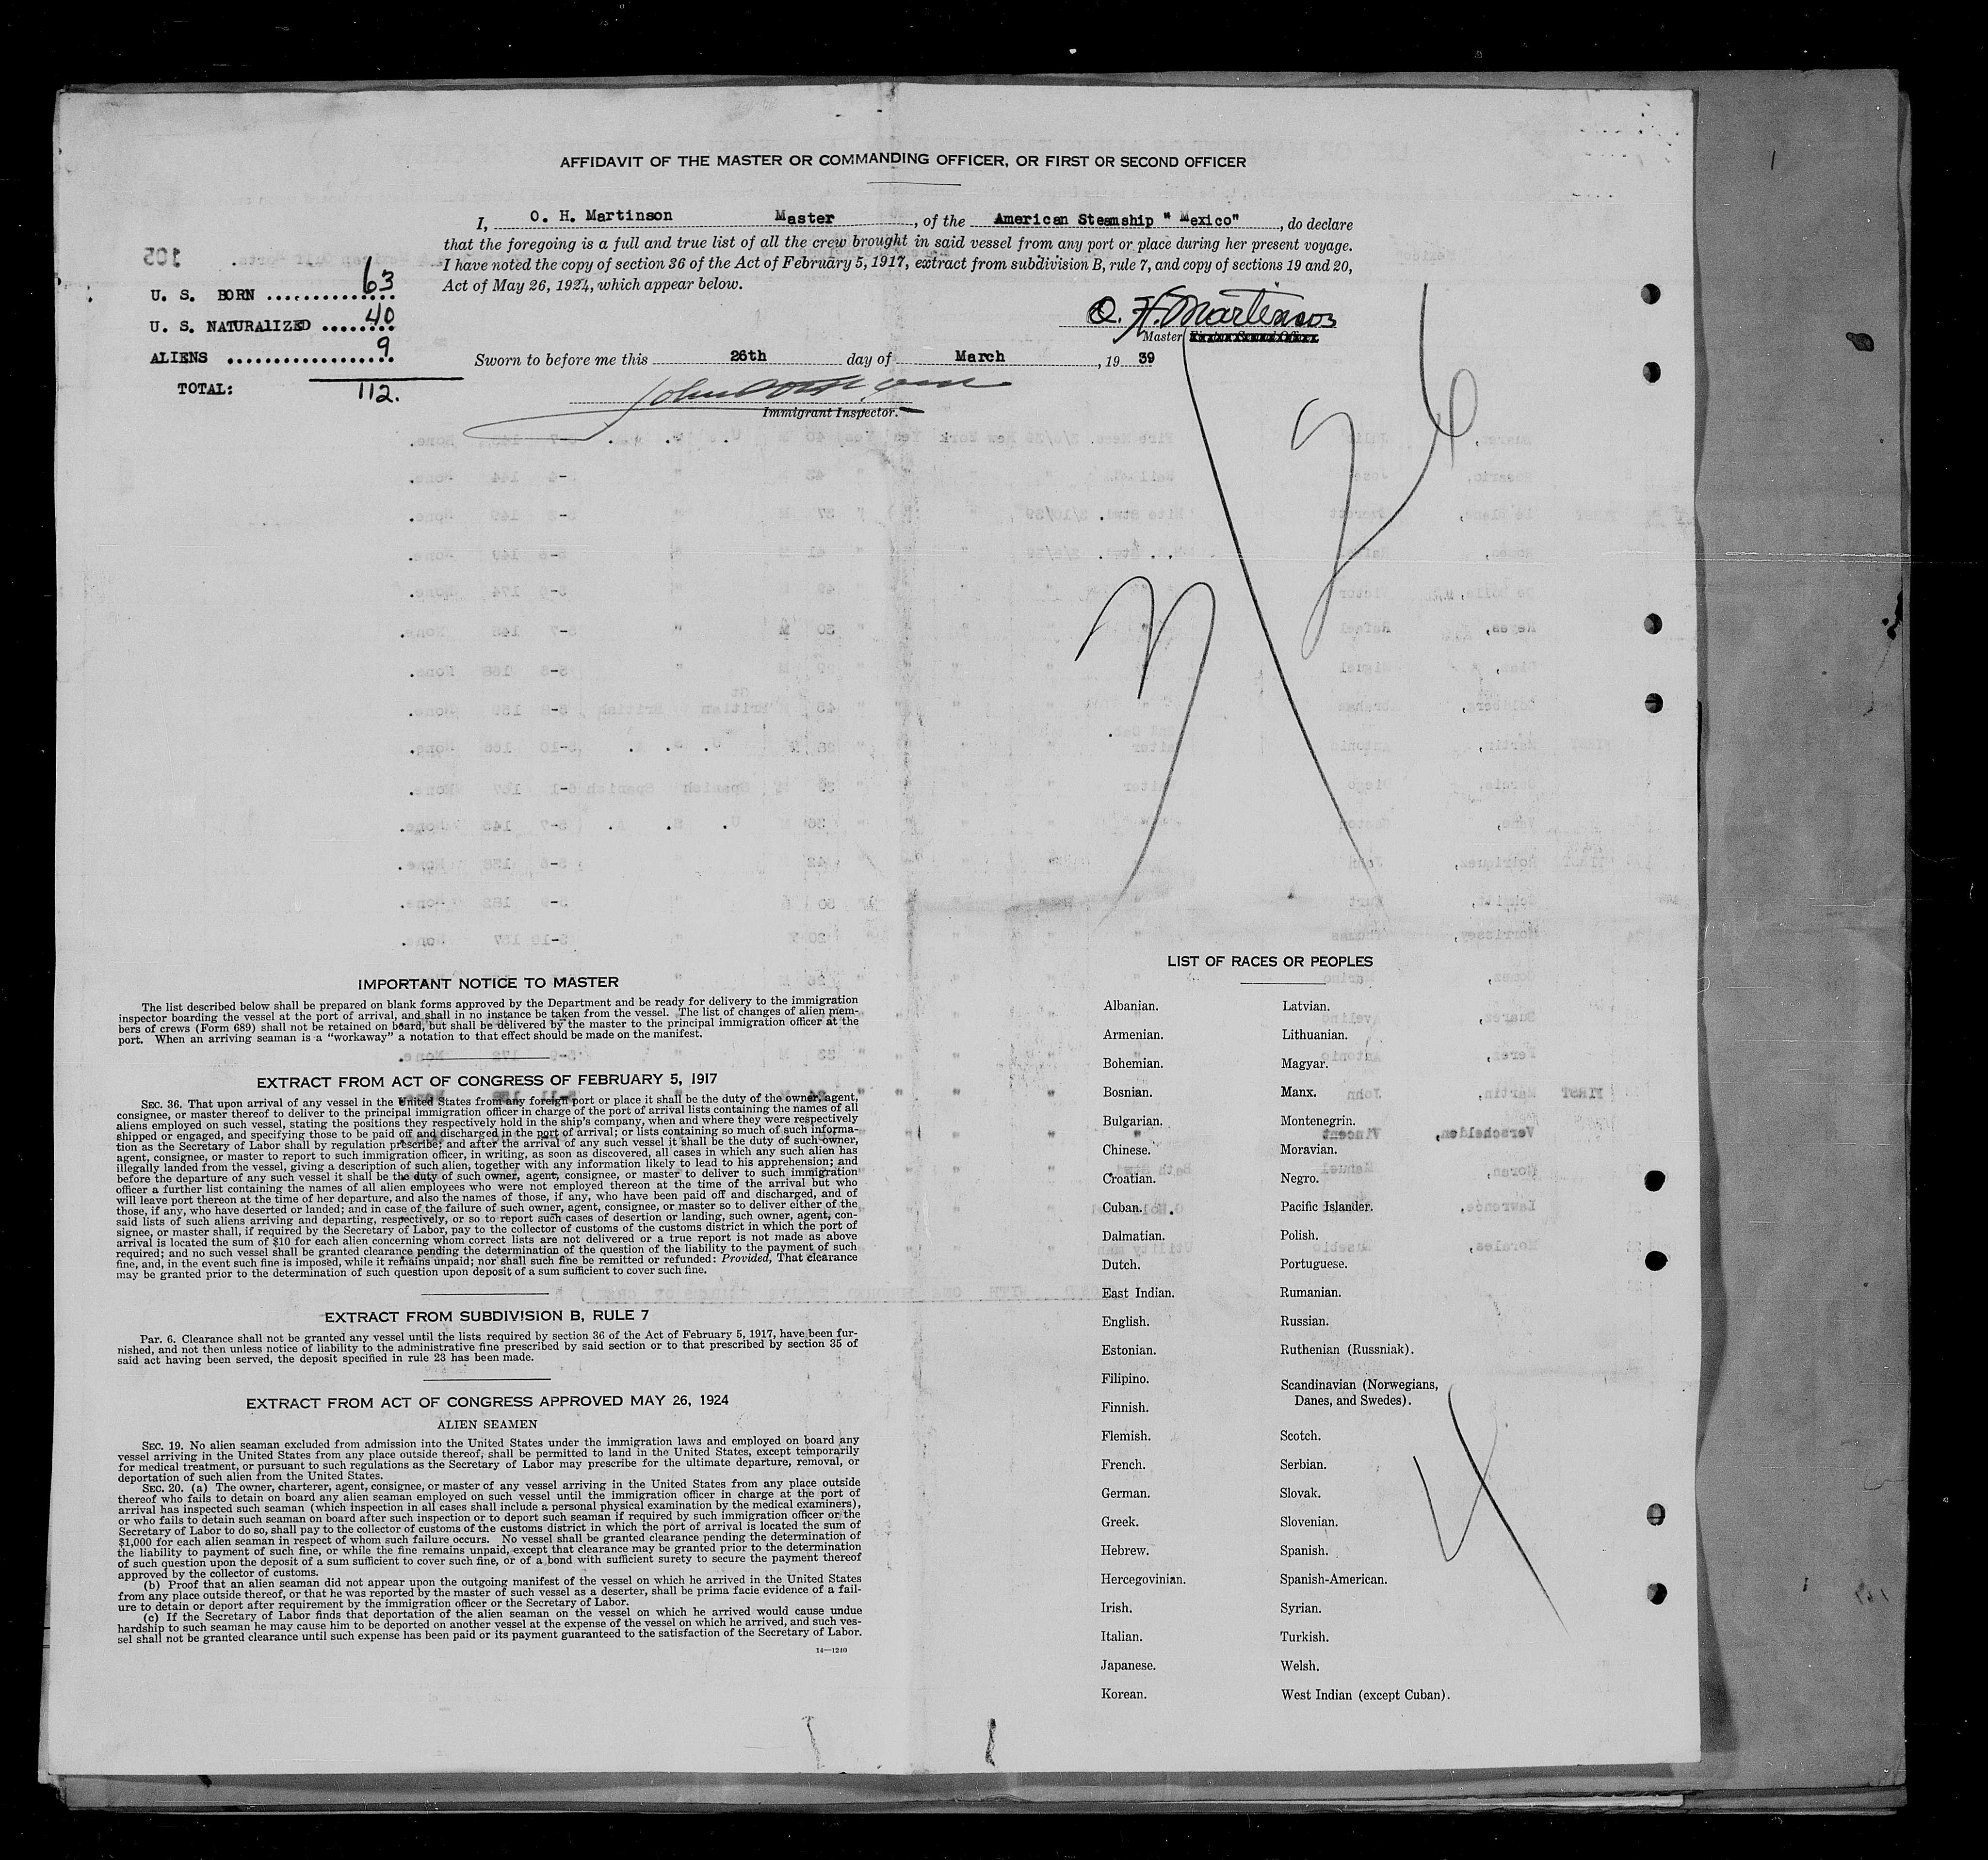 AFFIDAVIT OF THE MASTER OR COMMANDING OFFICER, OR FIRST OR SECOND OFFICER
I, O. H. Martinson Master, of the American Steamship " Mexico", do declare
that the foregoing is a full and true list of all the crew brought in said vessel from any port or place during her present voyage.
I have noted the copy of section 36 of the Act of February 5, 1917, extract from subdivision B, rule 7, and copy of sections 19 and 20,
Act of May 26, 1924, which appear below.
U. S. BORN .............. 63
U. S. NATURAlIZED ........ 40
ALIENS .................. 9
TOTAL: 112.
O. H. Martinson
Master
Sworn to before me this 26th day of March, 19 39
Immigrant Inspector.
3/26
IMPORTANT NOTICE TO MASTER
The list described below shall be prepared on blank forms approved by the Department and be ready for delivery to the immigration
inspector boarding the vessel at the port of arrival, and shall in no instance be taken from the vessel. The list of changes of alien mem-
bers of crews (Form 689) shall not be retained on board, but shall be delivered by the master to the principal immigration officer at the
port. When an arriving seaman is a "workaway" a notation to that effect should be made on the manifest.
EXTRACT FROM ACT OF CONGRESS OF FEBRUARY 5, 1917
SEC. 36. That upon arrival of any vessel in the United States from any foreign port or place it shall be the duty of the owner, agent,
consignee, or master thereof to deliver to the principal immigration officer in charge of the port of arrival lists containing the names of all
aliens employed on such vessel, stating the positions they respectively hold in the ship's company, when and where they were respectively
shipped or engaged, and specifying those to be paid off and discharged in the port of arrival; or lists containing so much of such informa-
tion as the Secretary of Labor shall by regulation prescribe; and after the arrival of any such vessel it shall be the duty of such owner,
agent, consignee, or master to report to such immigration officer, in writing, as soon as discovered, all cases in which any such alien has
illegally landed from the vessel, giving a description of such alien, together with any information likely to lead to his apprehension; and
before the departure of any such vessel it shall be the duty of such owner, agent, consignee, or master to deliver to such immigration
officer a further list containing the names of all alien employees who were not employed thereon at the time of the arrival but who
will leave port thereon at the time of her departure, and also the names of those, if any, who have been paid off and discharged, and of
those, if any, who have deserted or landed; and in case of the failure of such owner, agent, consignee, or master so to deliver either of the
said lists of such aliens arriving and departing, respectively, or so to report such cases of desertion or landing, such owner, agent, con-
signee, or master shall, if required by the Secretary of Labor, pay to the collector of customs of the customs district in which the port of
arrival is located the sum of $10 for each alien concerning whom correct lists are not delivered or a true report is not made as above
required; and no such vessel shall be granted clearance pending the determination of the question of the liability to the payment of such
fine, and, in the event such fine is imposed, while it remains unpaid; nor shall such fine be remitted or refunded: Provided, That clearance
may be granted prior to the determination of such question upon deposit of a sum sufficient to cover such fine.
EXTRACT FROM SUBDIVISION B, RULE 7
Par. 6. Clearance shall not be granted any vessel until the lists required by section 36 of the Act of February 5, 1917, have been fur-
nished, and not then unless notice of liability to the administrative fine prescribed by said section or to that prescribed by section 35 of
said act having been served, the deposit specified in rule 23 has been made.
EXTRACT FROM ACT OF CONGRESS APPROVED MAY 26, 1924
ALIEN SEAMEN
SEC. 19. No alien seaman excluded from admission into the United States under the immigration laws and employed on board any
vessel arriving in the United States from any place outside thereof, shall be permitted to land in the United States, except temporarily
for medical treatment, or pursuant to such regulations as the Secretary of Labor may prescribe for the ultimate departure, removal, or
deportation of such alien from the United States.
SEC. 20. (a) The owner, charterer, agent, consignee, or master of any vessel arriving in the United States from any place outside
thereof who fails to detain on board any alien seaman employed on such vessel until the immigration officer in charge at the port of
arrival has inspected such seaman (which inspection in all cases shall include a personal physical examination by the medical examiners),
or who fails to detain such seaman on board after such inspection or to deport such seaman if required by such immigration officer or the
Secretary of Labor to do so, shall pay to the collector of customs of the customs district in which the port of arrival is located the sum of
$1,000 for each alien seaman in respect of whom such failure occurs. No vessel shall be granted clearance pending the determination of
the liability to payment of such fine, or while the fine remains unpaid, except that clearance may be granted prior to the determination
of such question upon the deposit of a sum sufficient to cover such fine, or of a bond with sufficient surety to secure the payment thereof
approved by the collector of customs.
(b) Proof that an alien seaman did not appear upon the outgoing manifest of the vessel on which he arrived in the United States
from any place outside thereof, or that he was reported by the master of such vessel as a deserter, shall be prima facie evidence of a fail-
ure to detain or deport after requirement by the immigration officer or the Secretary of Labor.
(c) If the Secretary of Labor finds that deportation of the alien seaman on the vessel on which he arrived would cause undue
hardship to such seaman he may cause him to be deported on another vessel at the expense of the vessel on which he arrived, and such ves-
sel shall not be granted clearance until such expense has been paid or its payment guaranteed to the satisfaction of the Secretary of Labor.
14—1240
LIST OF RACES OR PEOPLES
Albanian.
Armenian.
Bohemian.
Bosnian.
Bulgarian.
Chinese.
Croatian.
Cuban.
Dalmatian.
Dutch.
East Indian.
English.
Estonian.
Filipino.
Finnish.
Flemish.
French.
German.
Greek.
Hebrew.
Hercegovinian.
Irish.
Italian.
Japanese.
Korean.
Latvian.
Lithuanian.
Magyar.
Manx.
Montenegrin.
Moravian.
Negro.
Pacific Islander.
Polish.
Portuguese.
Rumanian.
Russian.
Ruthenian (Russniak).
Scandinavian (Norwegians,
Danes, and Swedes).
Scotch.
Serbian.
Slovak.
Slovenian.
Spanish.
Spanish-American.
Syrian.
Turkish.
Welsh.
West Indian (except Cuban).